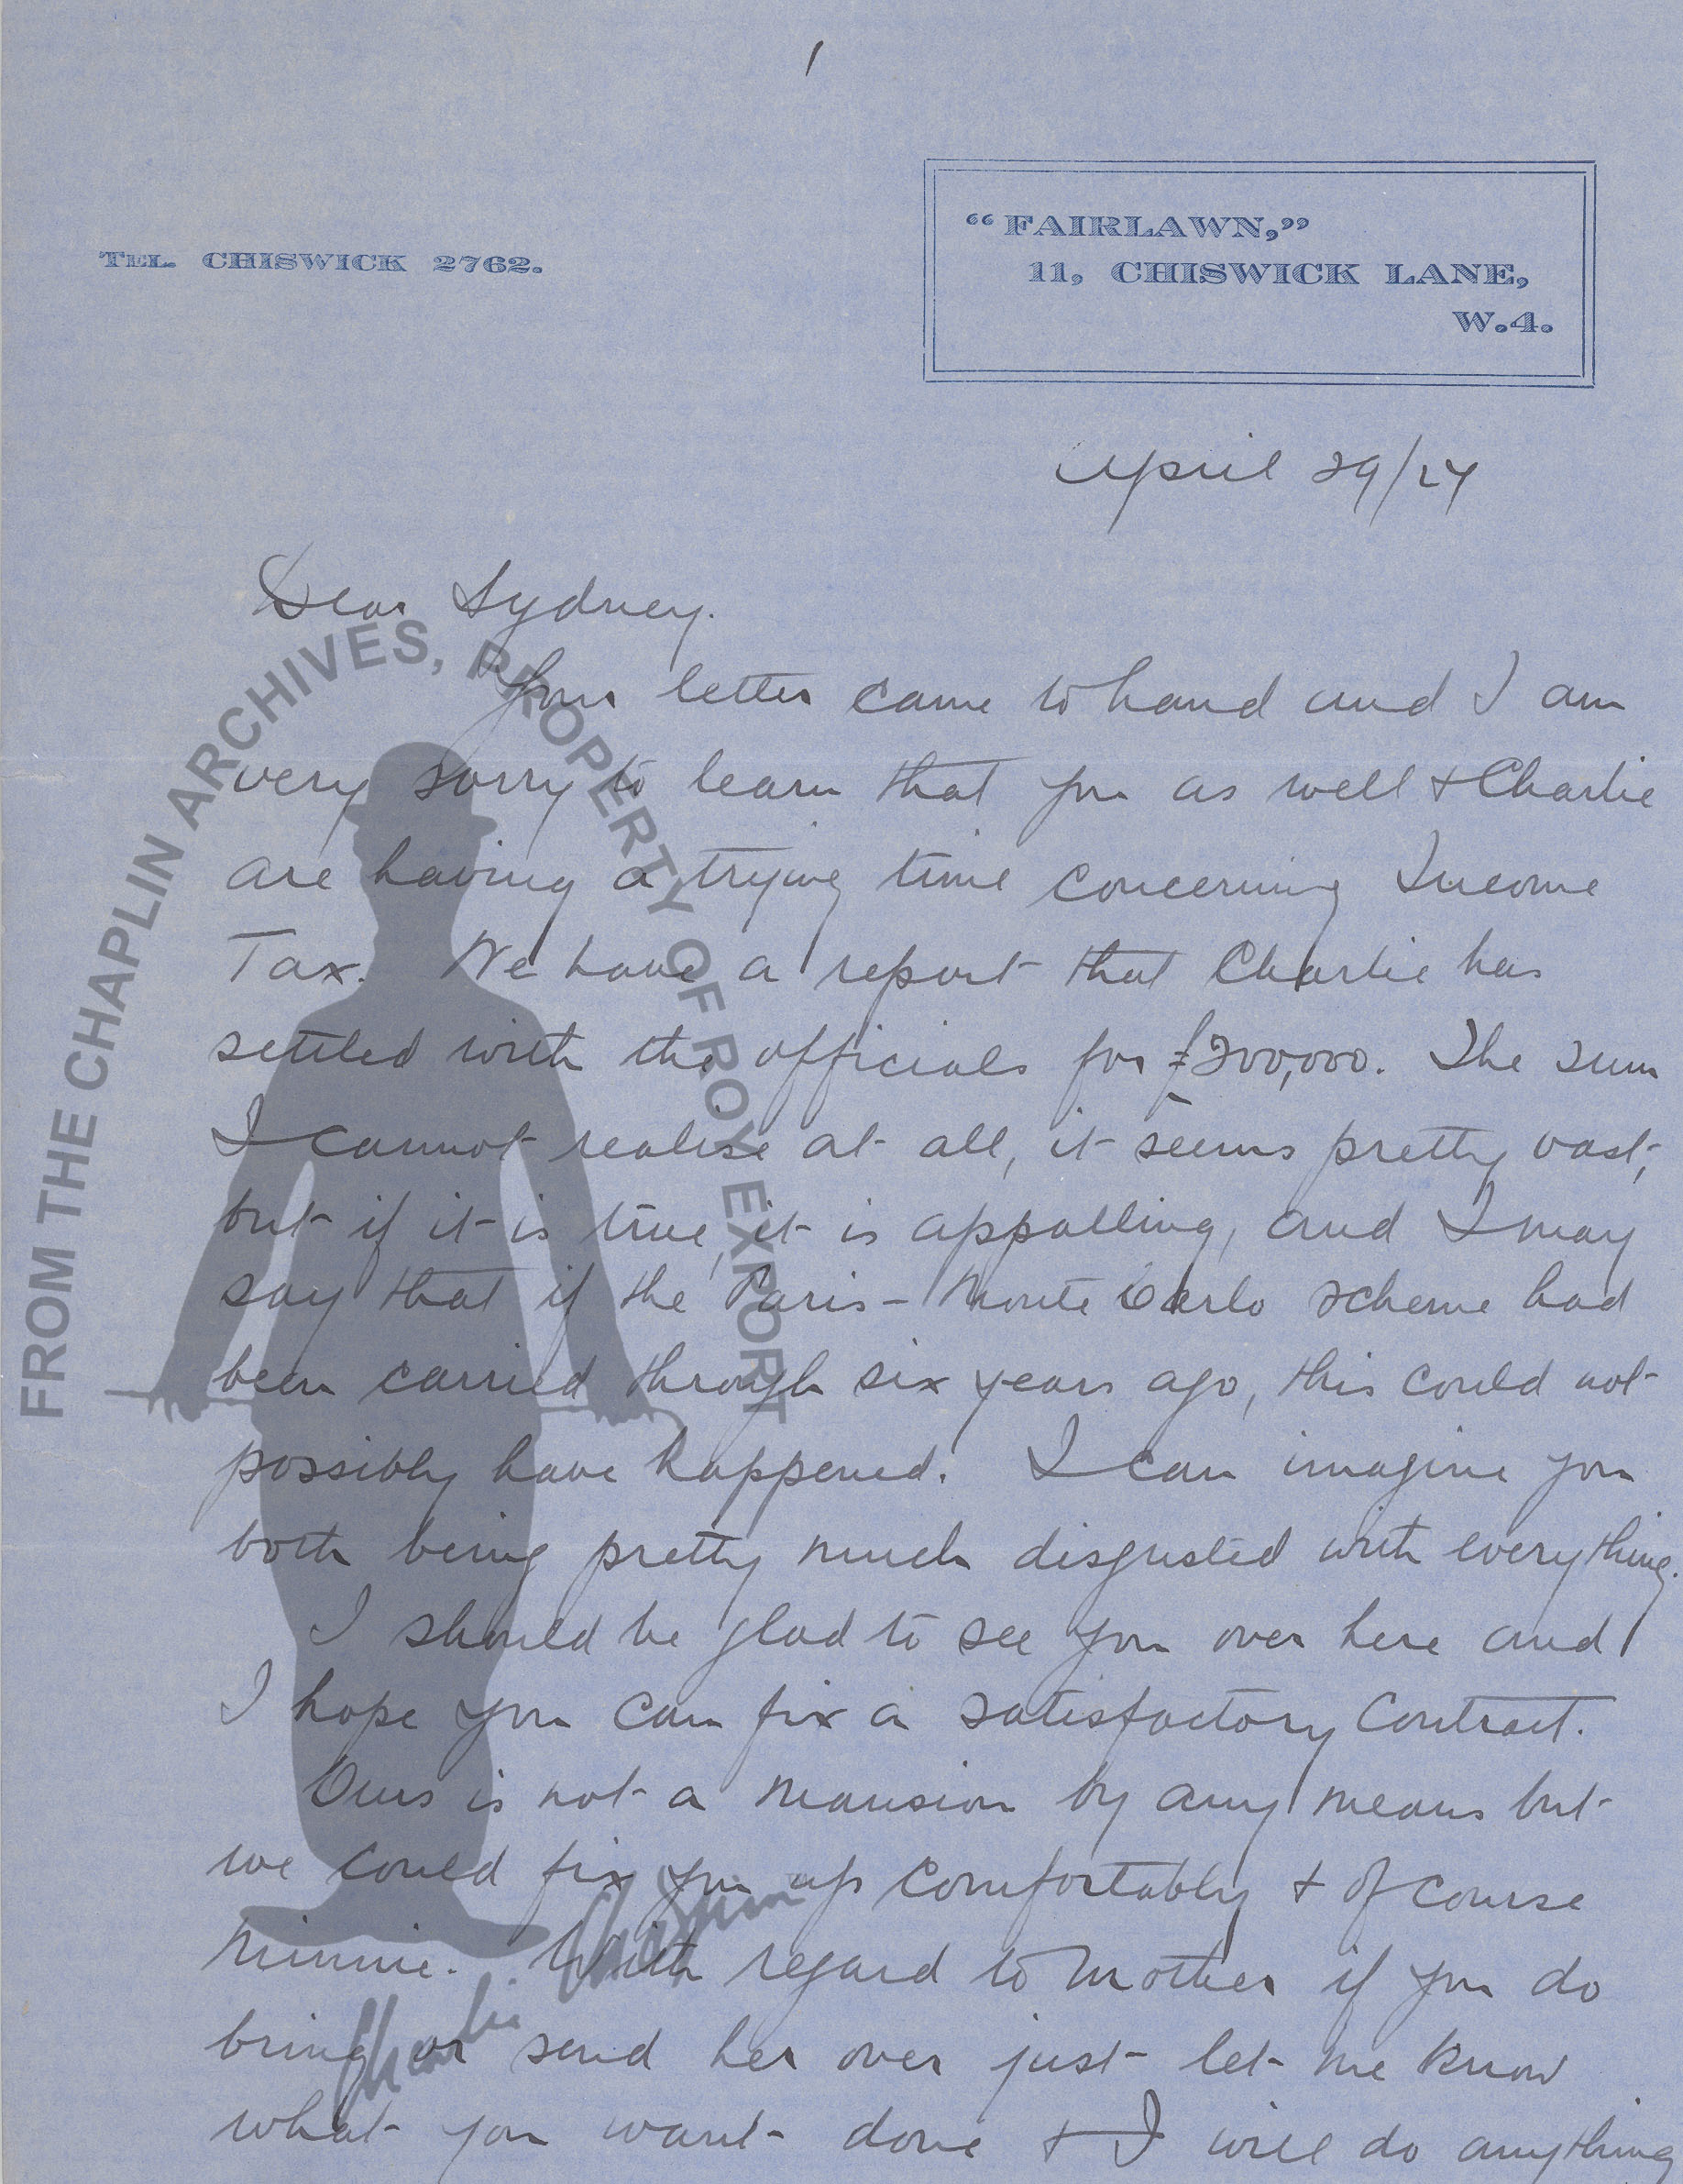 1
TEL. CHISWICK 2762.
"FAIRLAWN,"
11, CHISWICK LANE,
W.4.
April 29/24
Dear Sydney.
Your letter came to hand and I am
very sorry to learn that you as well + Charlie
are having a trying time concerning Income
Tax. We have a report that Charlie has
settled with the officials for £200,000. The sum
I cannot realise at all, it seems pretty vast,
but if it is true, it is appalling, and I may
say that if the Paris - Monte Carlo scheme had
been carried through six years ago, this could not
possibly have happened. I can imagine you
both being pretty much disgusted with everything.
I should be glad to see you over here and
I hope you can fix a satisfactory Contract.
Ours is not a mansion by any means but
we could fix you up comfortably + of course
Minnie. With regard to Mother if you do
bring or send her over just let me know
what you want done + I will do anything
FROM THE CHAPLIN ARCHIVES, PROPERTY OF ROY EXPORT
Charlie Chaplin